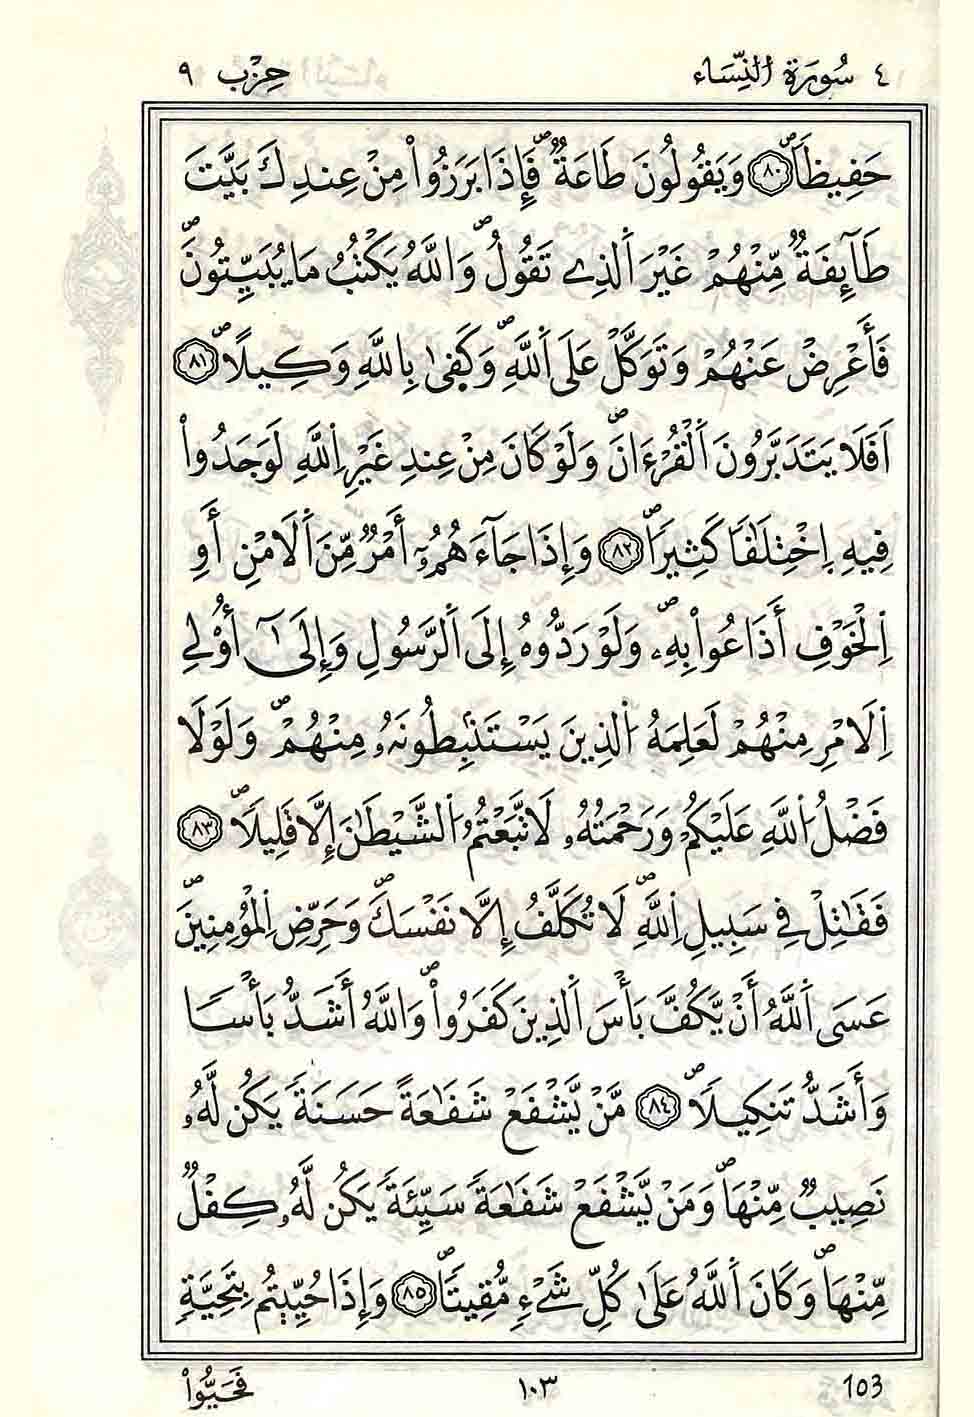 ٤ سُورَةُ اُلنِّسَاء حِزْب ٩
حَفِيظاٗۖ ٨٠ وَيَقُولُونَ طَاعَةٞۖ فَإِذَا بَرَزُواْ مِنْ عِندِكَ بَيَّتَ
طَآئِفَةٞ مِّنْهُمْ غَيْرَ اَلذِے تَقُولُۖ وَاللَّهُ يَكْتُبُ مَا يُبَيِّتُونَۖ
فَأَعْرِضْ عَنْهُمْ وَتَوَكَّلْ عَلَى اَللَّهِۖ وَكَفٜىٰ بِاللَّهِ وَكِيلاًۖ ٨١
اَفَلَا يَتَدَبَّرُونَ اَلْقُرْءَانَۖ وَلَوْ كَانَ مِنْ عِندِ غَيْرِ اِللَّهِ لَوَجَدُواْ
فِيهِ اِخْتِلَٰفاٗ كَثِيراٗۖ ٨٢ وَإِذَا جَآءَهُمُۥٓ أَمْرٞ مِّنَ اَلَامْنِ أَوِ
اِلْخَوْفِ أَذَاعُواْ بِهِۦۖ وَلَوْ رَدُّوهُ إِلَى اَلرَّسُولِ وَإِلَىٰٓ أُوْلِے
اِلَامْرِ مِنْهُمْ لَعَلِمَهُ اُلذِينَ يَسْتَنۢبِطُونَهُۥ مِنْهُمْۖ وَلَوْلَا
فَضْلُ اُللَّهِ عَلَيْكُمْ وَرَحْمَتُهُۥ لَاتَّبَعْتُمُ اُلشَّيْطَٰنَ إِلَّا قَلِيلاٗۖ ٨٣
فَقَٰتِلْ فِے سَبِيلِ اِللَّهِ لَا تُكَلَّفُ إِلَّا نَفْسَكَۖ وَحَرِّضِ اِلْمُؤْمِنِينَۖ
عَسَى اَللَّهُ أَنْ يَّكُفَّ بَأْسَ اَلذِينَ كَفَرُواْۖ وَاللَّهُ أَشَدُّ بَأْساٗ
وَأَشَدُّ تَنكِيلاٗۖ ٨٤ مَّنْ يَّشْفَعْ شَفَٰعَةً حَسَنَةٗ يَكُن لَّهُۥ
نَصِيبٞ مِّنْهَاۖ وَمَنْ يَّشْفَعْ شَفَٰعَةٗ سَيِّئَةٗ يَكُن لَّهُۥ كِفْلٞ
مِّنْهَاۖ وَكَانَ اَللَّهُ عَلَىٰ كُلِّ شَےْءٖ مُّقِيتاٗۖ ٨٥ وَإِذَا حُيِّيتُم بِتَحِيَّةٖ
فَحَيُّواْ ١٠٣ 103